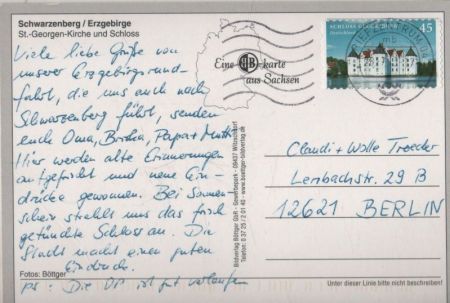 Schwarzenberg / Erzgebirge
St.-Georgen-Kirche und Schloss
Viele liebe Grüße von
unserer Erzgebirgsrund-
fahrt, die uns auch nach
Schwarzenberg führt, senden
euch Oma, Papa + Mutti
Hier werden alte Erinnerungen
aufgefrischt und neue Ein-
drücke gewonnen. Bei Sonnen
schein strahlt uns das frisch
getünchte Schloss an. Die
Stadt macht einen guten
Eindruck.
PS: Die OP ist gut verlaufen
Fotos: Böttger
Eine HB-karte
aus Sachsen
45
Deutschland
Claudi + Wolle Troeder
Lenbachstr. 29 B
12621 BERLIN
Bildverlag Böttger GbR · Gewerbepark · 09437 Witzschdorf
Telefon: 0 37 25 / 2 01 40 · www.boettger-bildverlag.de
Unter dieser Linie bitte nicht beschreiben!